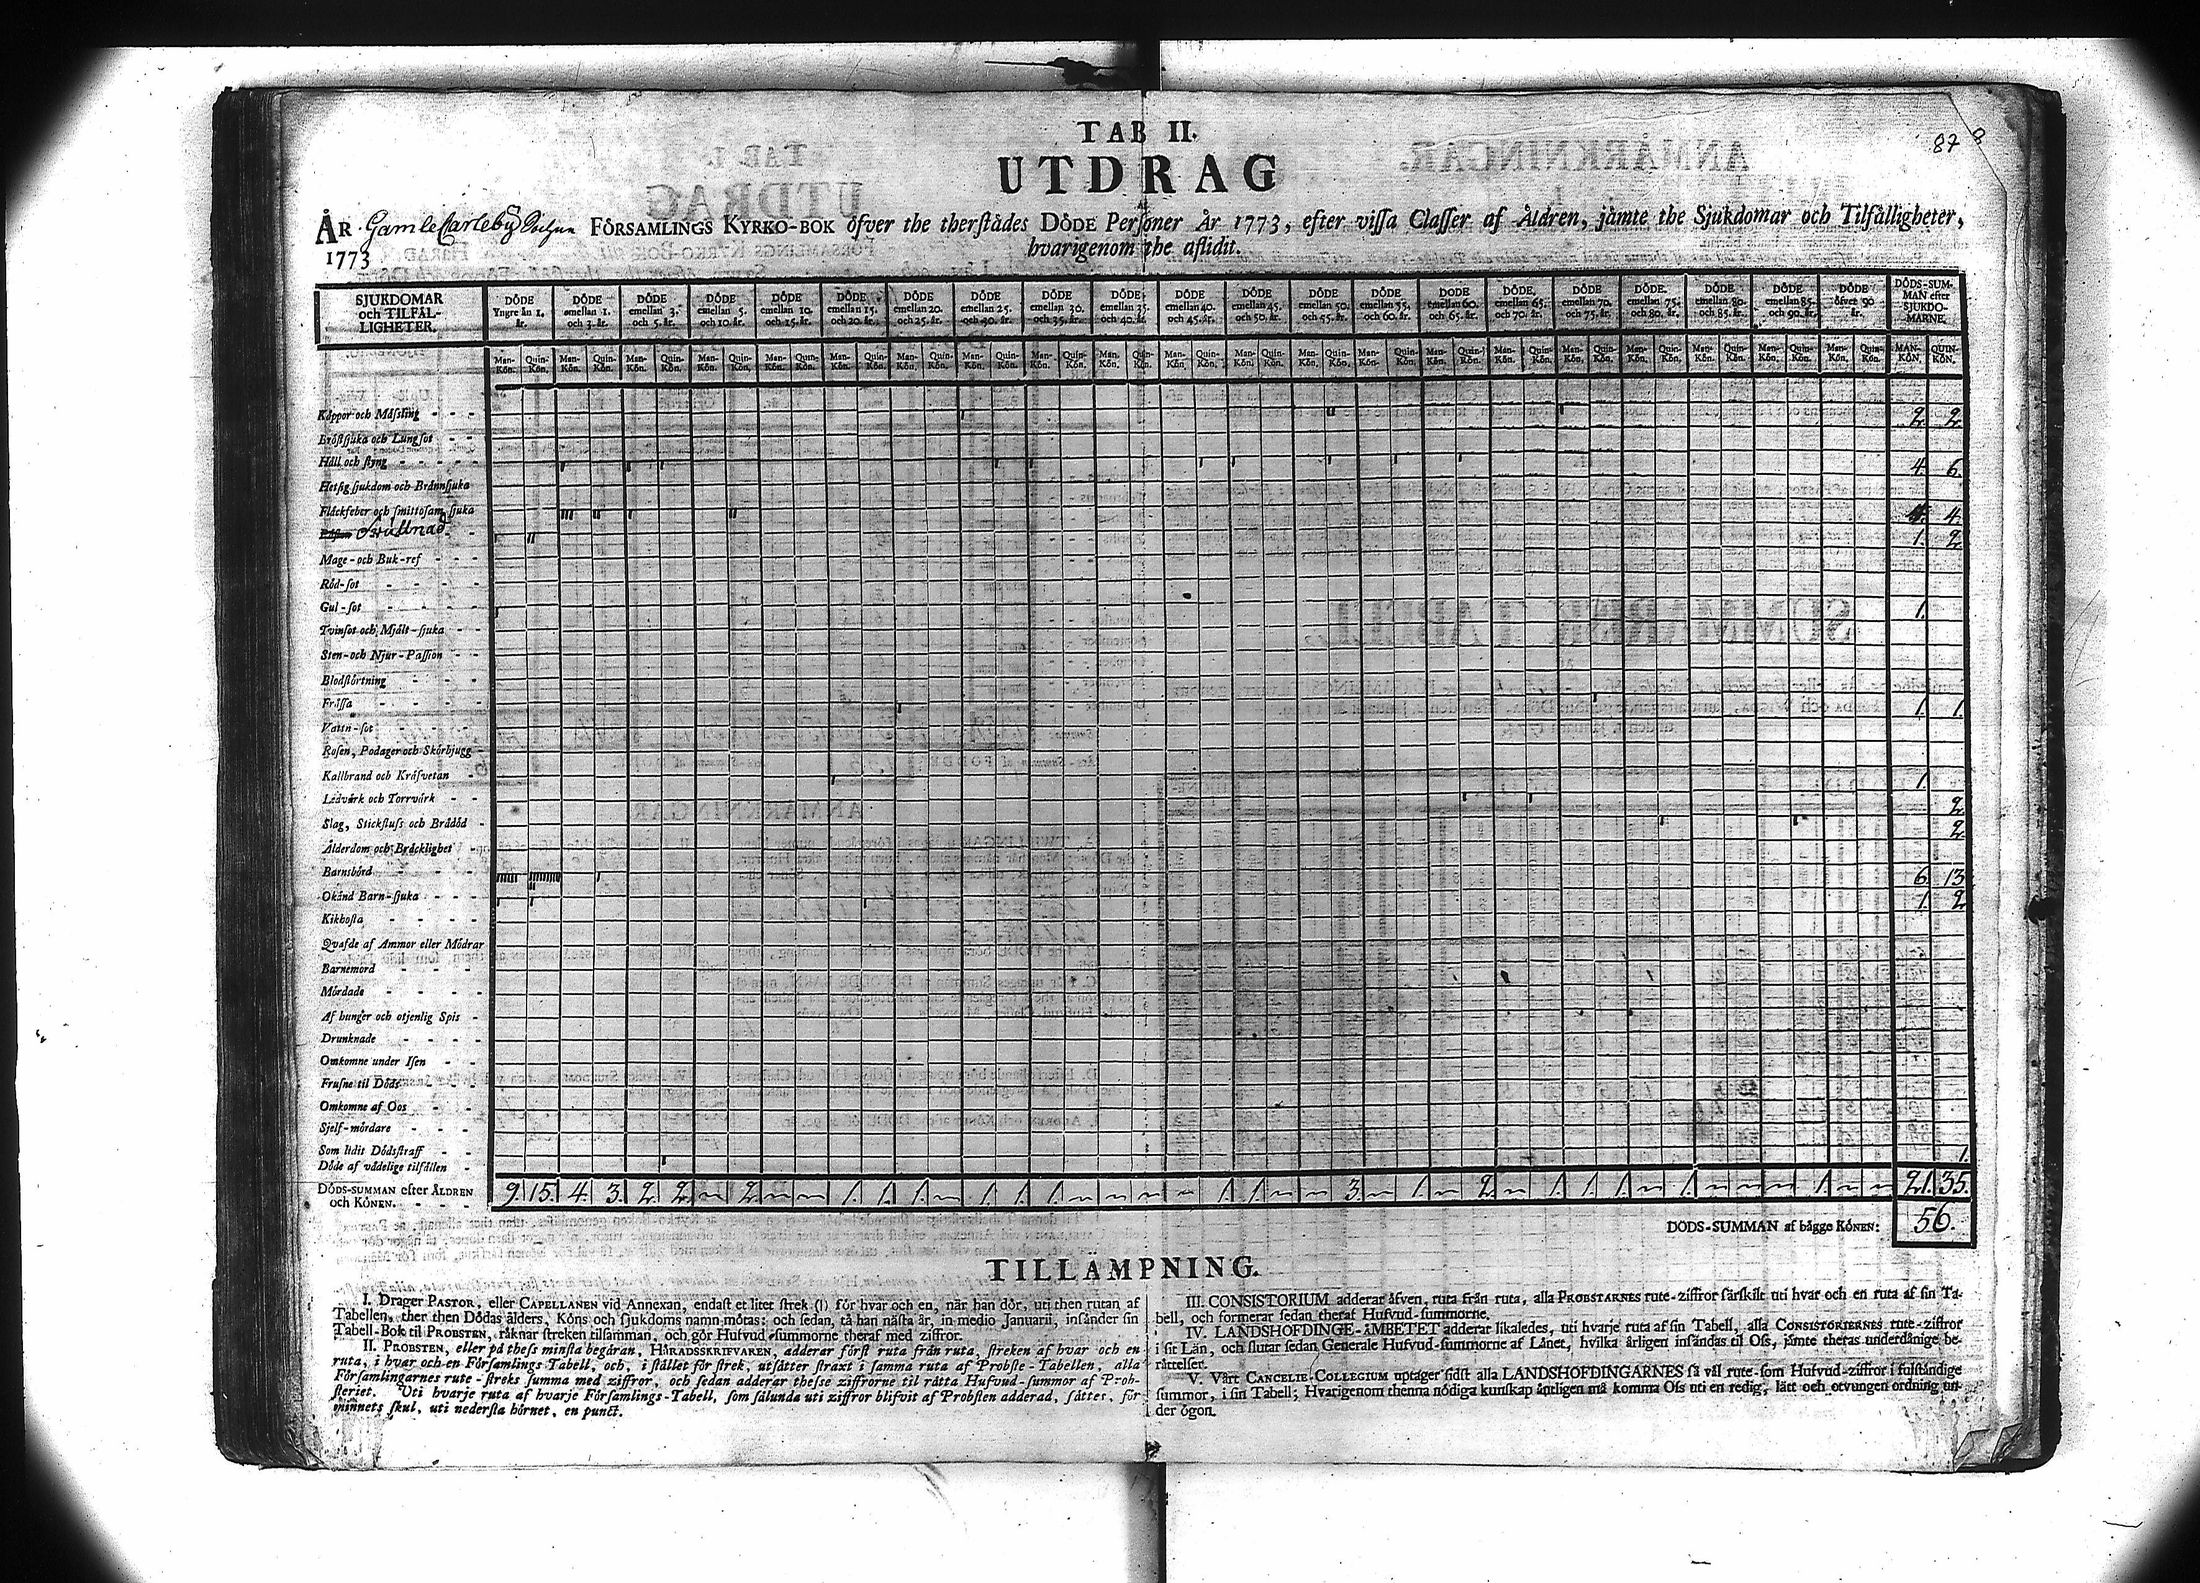 87
TAB II.
UTDRAG
AF
ÅR Gamle Carleby FÖRSAMLINGS KYRKO-BOK öfver the therstädes DÖDE Personer År 1773, efter vissa Classer af Åldren, jämte the Sjukdomar och Tilfälligheter,
1773 hvarigenom the aflidit.
SJUKDOMAR och TILFÄLLIGHETER. DÖDE Yngre än 1. år. DÖDE emellan 1. och 3. år. DÖDE emellan 3. och 5. år. DÖDE emellan 5. och 10. år. DÖDE emellan 10. och 15. år. DÖDE emellan 15. och 20. år. DÖDE emellan 20. och 25. år. DÖDE emellan 25. och 30. år. DÖDE emellan 30. och 35. år. DÖDE emellan 35. och 40. år. DÖDE emellan 40. och 45. år. DÖDE emellan 45. och 50. år. DÖDE emellan 50. och 55. år. DÖDE emellan 55. och 60. år. DÖDE emellan 60. och 65. år. DÖDE emellan 65. och 70. år. DÖDE emellan 70. och 75. år. DÖDE emellan 75. och 80. år. DÖDE emellan 80. och 85. år. DÖDE emellan 85. och 90. år. DÖDE öfver 90 år. DÖDS-SUMMAN efter SJUKDOMARNE.
Man-Kön. Quin-Kön. Man-Kön. Quin-Kön. Man-Kön. Quin-Kön. Man-Kön. Quin-Kön. Man-Kön. Quin-Kön. Man-Kön. Quin-Kön. Man-Kön. Quin-Kön. Man-Kön. Quin-Kön. Man-Kön. Quin-Kön. Man-Kön. Quin-Kön. Man-Kön. Quin-Kön. Man-Kön. Quin-Kön. Man-Kön. Quin-Kön. Man-Kön. Quin-Kön. Man-Kön. Quin-Kön. Man-Kön. Quin-Kön. Man-Kön. Quin-Kön. Man-Kön. Quin-Kön. Man-Kön. Quin-Kön. Man-Kön. Quin-Kön. Man-Kön. Quin-Kön. MAN-KÖN. QUIN-KÖN.
Koppor och Mässling - - - 2. 2.
Bröstsjuka och Lungsot - -
Håll och styng - - - - - 4. 6.
Hetsig sjukdom och Brännsjuka
Fläckfeber och smittosam sjuka 4.
1. 2.
Mage- och Buk-ref - - -
Röd-sot - - - -
Gul-sot - - - - 1.
Tvinsot och Mjält-sjuka - -
Sten- och Njur-Passion - -
Blodstörtning - - -
Frossa - - - - 1. 1.
Vattn-sot - - - -
Rosen, Podager och Skörbjugg -
Kallbrand och Kräfvetan - 1.
Ledvärk och Torrvärk - - 2.
Slag, Stickfluss och Brådöd - 2.
Ålderdom och Bräcklighet -
Barnsbörd - - - - 6. 13.
Okänd Barn-sjuka - - - 1. 2.
Kikhosta - - - -
Qvafde af Ammor eller Mödrar
Barnemord - - -
Mördade - - - -
Af hunger och otjenlig Spis -
Drunknade - - - -
Omkomne under Isen - -
Frusne til Döds - - -
Omkomne af Oos - -
Sjelf-mördare - - -
Som lidit Dödsstraff - -
Döde af vådelige tilfällen - 1.
DÖDS-SUMMAN efter ÅLDREN och KÖNEN. - - - 9. 15. 4. 3. 2. 2. ~ 2. ~ ~ 1. 1. 1. ~ 1. 1. 1. ~ ~ ~ ~ 1. 1. ~ ~ 3. ~ 1. ~ 2. ~ 1. 1. 1. ~ 1. ~ ~ ~ 1. ~ ~ 21. 35.
DÖDS-SUMMAN af bägge KÖNEN: 56.
TILLÄMPNING.
I. Drager PASTOR, eller CAPELLANEN vid Annexan, endast et litet strek (|) för hvar och en, när han dör, uti then rutan af
Tabellen, ther then Dödas ålders, Köns och sjukdoms namn mötas: och sedan, tå han nästa år, in medio Januarii, insänder sin
Tabell-Bok til PROBSTEN, räknar streken tilsamman, och gör Hufvud-summorne theraf med ziffror.
II. PROBSTEN, eller på thess minsta begäran, HÄRADSSKRIFVAREN, adderar först ruta från ruta, streken af hvar och en
ruta, i hvar och en Församlings Tabell, och, i stället för strek, utsätter straxt i samma ruta af Probste-Tabellen, alla
Församlingarnes rute-streks summa med ziffror, och sedan adderar thesse ziffrorne til rätta Hufvud-summor af Prob-
steriet. Uti hvarje ruta af hvarje Församlings-Tabell, som sålunda uti ziffror blifvit af Probsten adderad, sättes, för
minnets skul, uti nedersta hörnet, en punct.
III. CONSISTORIUM adderar äfven, ruta från ruta, alla PROBSTARNES rute-ziffror särskilt uti hvar och en ruta af sin Ta-
bell, och formerar sedan theraf Hufvud-summorne.
IV. LANDSHOFDINGE-ÄMBETET adderar likaledes, uti hvarje ruta af sin Tabell, alla CONSISTORIERNES rute-ziffror
i sit Län, och slutar sedan Generale Hufvud-summorne af Länet, hvilka årligen insändas til Oss, jämte theras underdånige be-
rättelser.
V. Vårt CANCELIE-COLLEGIUM uptager sidst alla LANDSHOFDINGARNES så väl rute- som Hufvud-ziffror i fulständige
summor, i sin Tabell; Hvarigenom thenna nödiga kunskap äntligen må komma Oss uti en redig, lätt och otvungen ordning un-
der ögon.